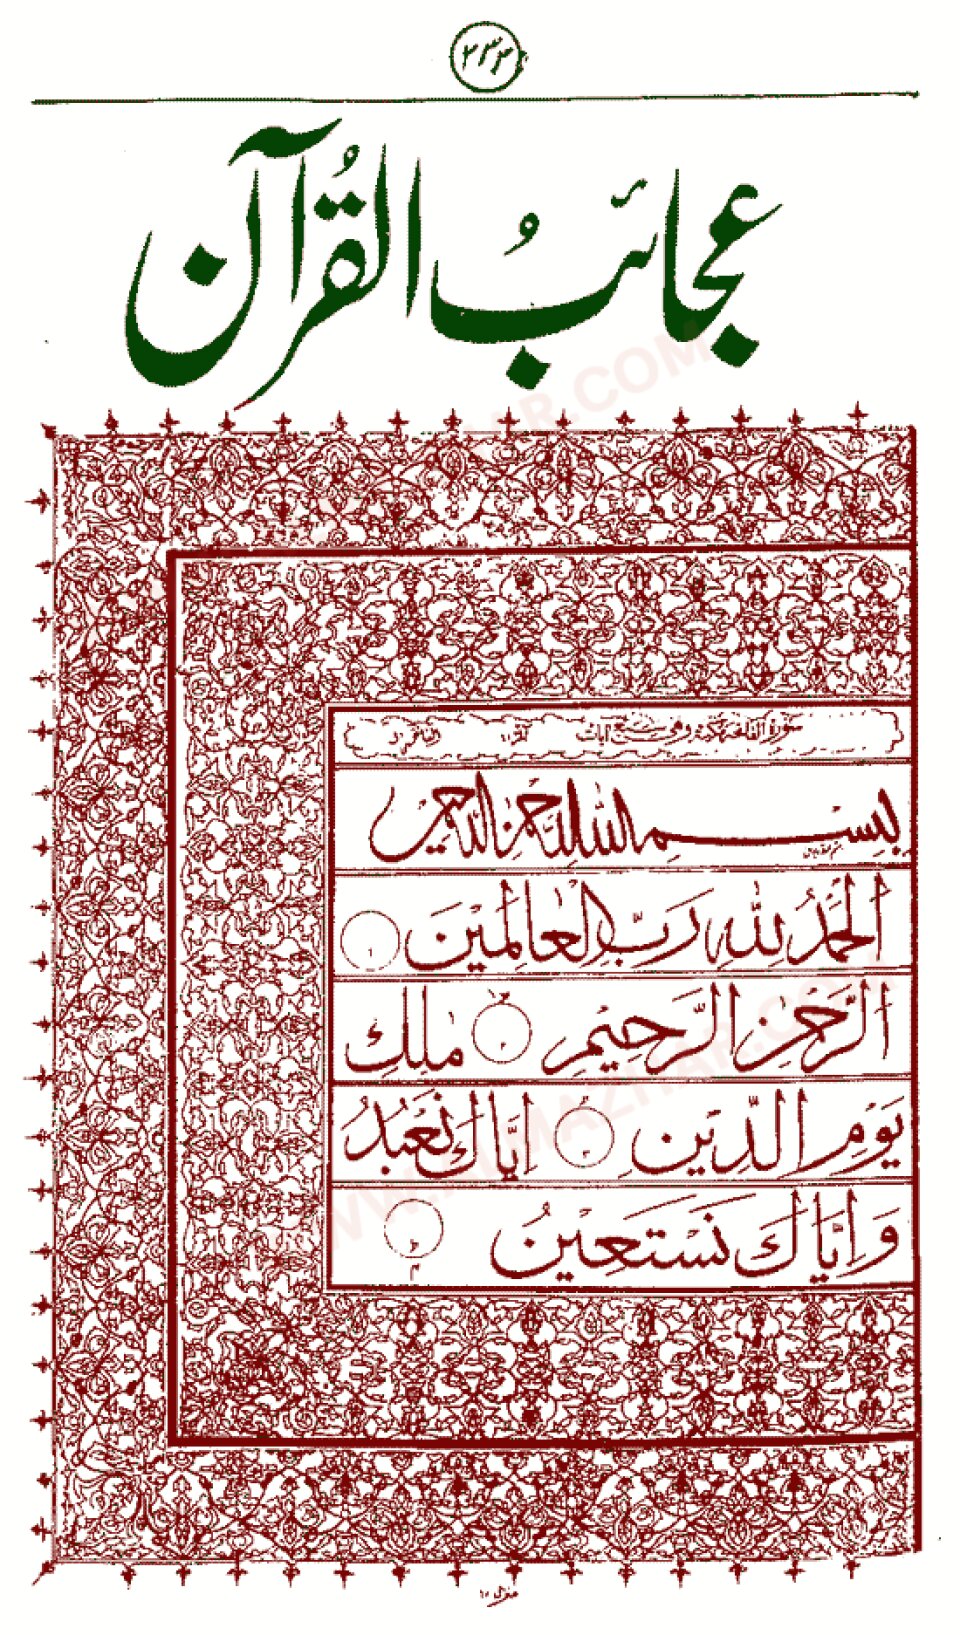 ۲۳۲
عجائب القُرآن
سورة الفاتحة مكية وهي سبع آيات
بِسْمِ الله الرَّحْمٰنِ الرَّحِيْمِ
اَلْحَمْدُ لِلّٰهِ رَبِّ الْعَالَمِيْنَ ۱
الرَّحْمٰنِ الرَّحِيْمِ ۲ مٰلِكِ
يَوْمِ الدِّيْنِ ۳ اِيَّاكَ نَعْبُدُ
وَاِيَّاكَ نَسْتَعِيْنُ ۴
منزل ۱
WWW.ALMAZHAR.COM